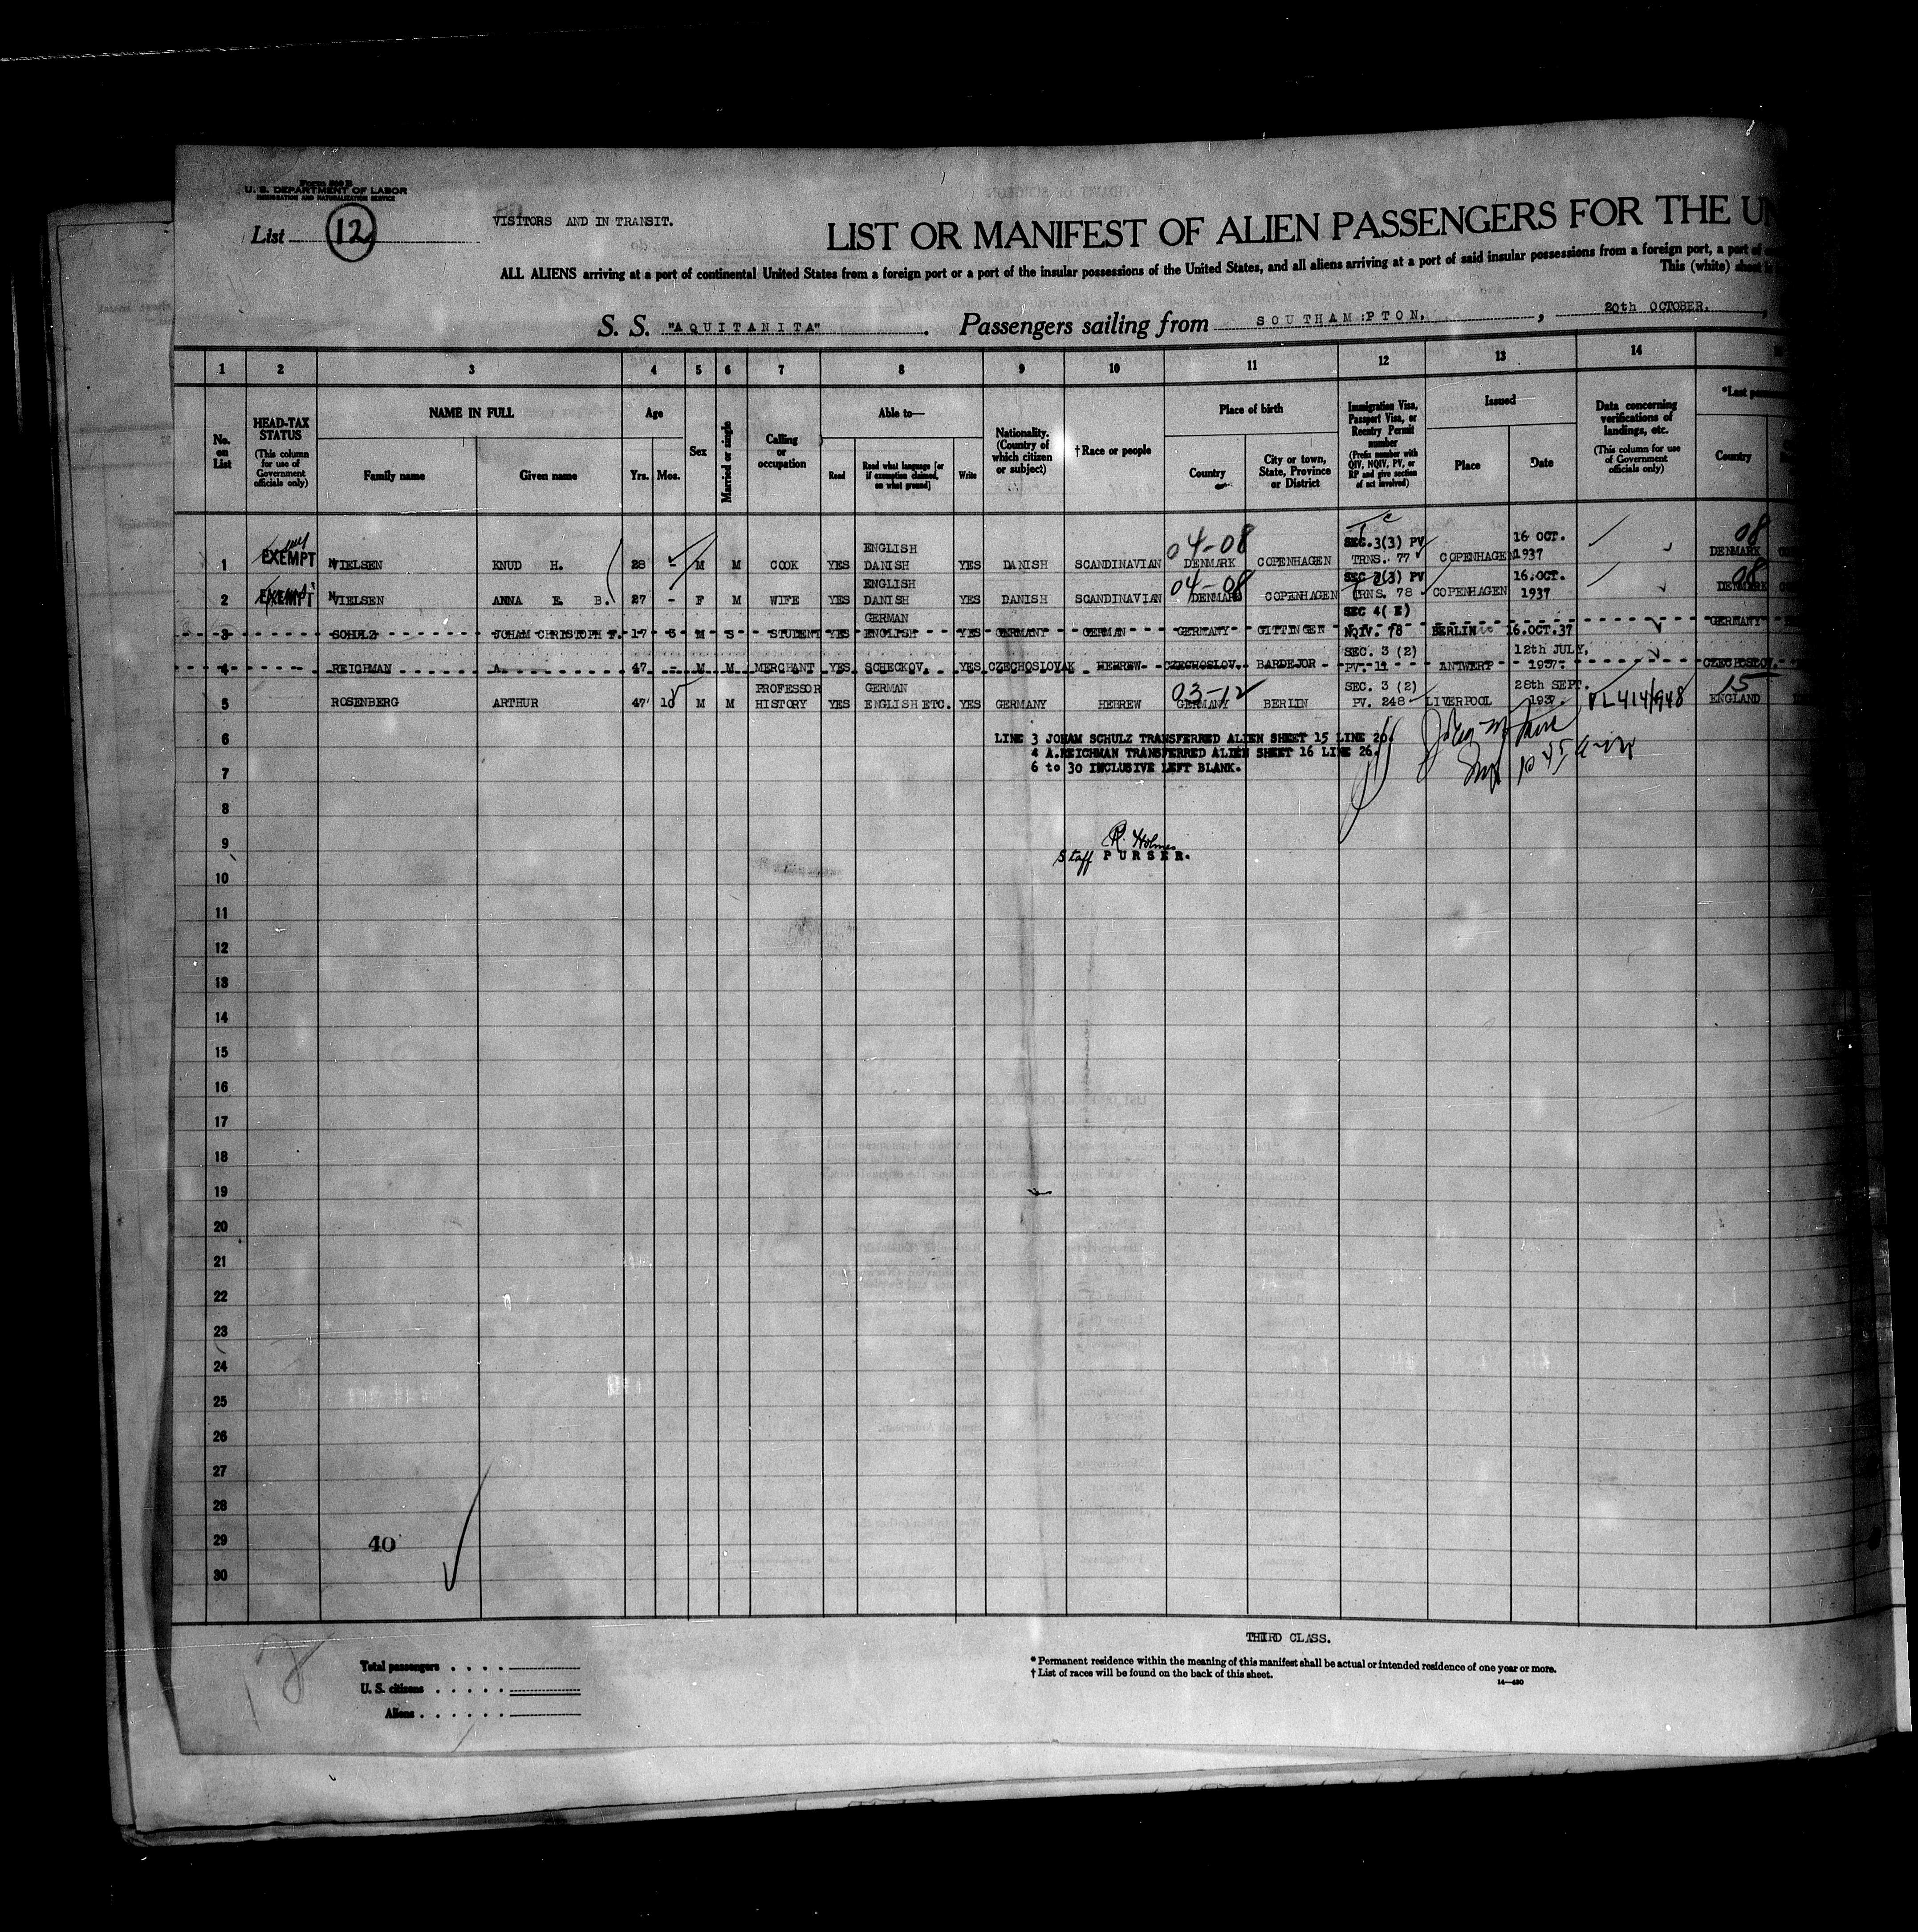 Form 500 B
U. S. DEPARTMENT OF LABOR
IMMIGRATION AND NATURALIZATION SERVICE
List 12
VISITORS AND IN TRANSIT.
LIST OR MANIFEST OF ALIEN PASSENGERS FOR THE UN
ALL ALIENS arriving at a port of continental United States from a foreign port or a port of the insular possessions of the United States, and all aliens arriving at a port of said insular possessions from a foreign port, a port of
This (white) sheet is
S. S. "AQUITANITA" . Passengers sailing from SOUTHAM:PTON. , 20th OCTOBER. ,
1 2 3 4 5 6 7 8 9 10 11 12 13 14
No. on List
HEAD-TAX STATUS (This column for use of Government officials only)
NAME IN FULL
Family name
Given name
Age
Yrs.
Mos.
Sex
Married or single
Calling or occupation
Able to—
Read
Read what language [or if exemption claimed, on what ground]
Write
Nationality. (Country of which citizen or subject)
† Race or people
Place of birth
Country
City or town, State, Province or District
Immigration Visa, Passport Visa, or Reentry Permit number (Prefix number with QIV, NQIV, PV, or RP and give section of act involved)
Issued
Place
Date
Data concerning verifications of landings, etc. (This column for use of Government officials only)
*Last
Country
1 EXEMPT NIELSEN KNUD H. 28 - M M COOK YES ENGLISH DANISH YES DANISH SCANDINAVIAN 04-08 DENMARK COPENHAGEN SEC.3(3) PV TRNS. 77 COPENHAGEN 16 OCT. 1937 08 DENMARK
2 EXEMPT NIELSEN ANNA E. B. 27 - F M WIFE YES ENGLISH DANISH YES DANISH SCANDINAVIAN 04-08 DENMARK COPENHAGEN SEC 3(3) PV TRNS. 78 COPENHAGEN 16.OCT. 1937 08 DENMARK
3 SCHULZ JOHAM CHRISTOPH F. 17 6 M S STUDENT YES GERMAN ENGLISH YES GERMANY GERMAN GERMANY GITTINGEN SEC 4( E) NQIV. 78 BERLIN 16.OCT.37 GERMANY
4 REICHMAN A. 47 - M M MERCHANT YES SCHECKOV. YES CZECHOSLOVAK HEBREW CZECHOSLOV. BARDEJOR SEC. 3 (2) PV. 11 ANTWERP 12th JULY, 1937. CZECHOSLOV.
5 ROSENBERG ARTHUR 47 10 M M PROFESSOR HISTORY YES GERMAN ENGLISH ETC. YES GERMANY HEBREW 03-12 GERMANY BERLIN SEC. 3 (2) PV. 248 LIVERPOOL 28th SEPT. 1937. PL414/948 15 ENGLAND
6 LINE 3 JOHAM SCHULZ TRANSFERRED ALIEN SHEET 15 LINE 20.
4 A.REICHMAN TRANSFERRED ALIEN SHEET 16 LINE 26.
7 6 to 30 INCLUSIVE LEFT BLANK.
8
9 R. Holmes
Staff PURSER.
10
11
12
13
14
15
16
17
18
19
20
21
22
23
24
25
26
27
28
29 40
30
THIRD CLASS.
Total passengers
U. S. citizens
Aliens
* Permanent residence within the meaning of this manifest shall be actual or intended residence of one year or more.
† List of races will be found on the back of this sheet.
14—430